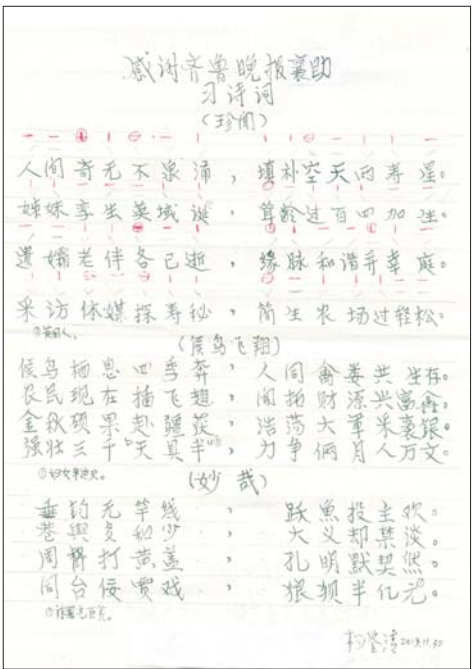 感谢齐鲁晚报襄助
习诗词
(珍闻)
人间奇无不泉涌，填补空天两寿星。
姊妹孪生英域诞，耸龄过百四加注。
遗孀老伴各已逝，缘脉和谐并幸庭。
采访体媒探寿秘，简生农场过轻松。
①英国人。
(候鸟飞翔)
候鸟栖息四季奔，人同禽娄共生存。
农民现在插飞翅，闻拍财源兴富鑫。
金秋硕果赴疆获，浩荡大军来裹银。
强壮三千天具半，力争俩月人万文。
①妇女半边天。
(妙哉)
垂钓无竿线，跃魚投主欢。
巷舆多和少，大义却禁淡。
周督打黄盖，孔明默契然。
同台佞贾戏，狼狈半亿光。
2019.11.30